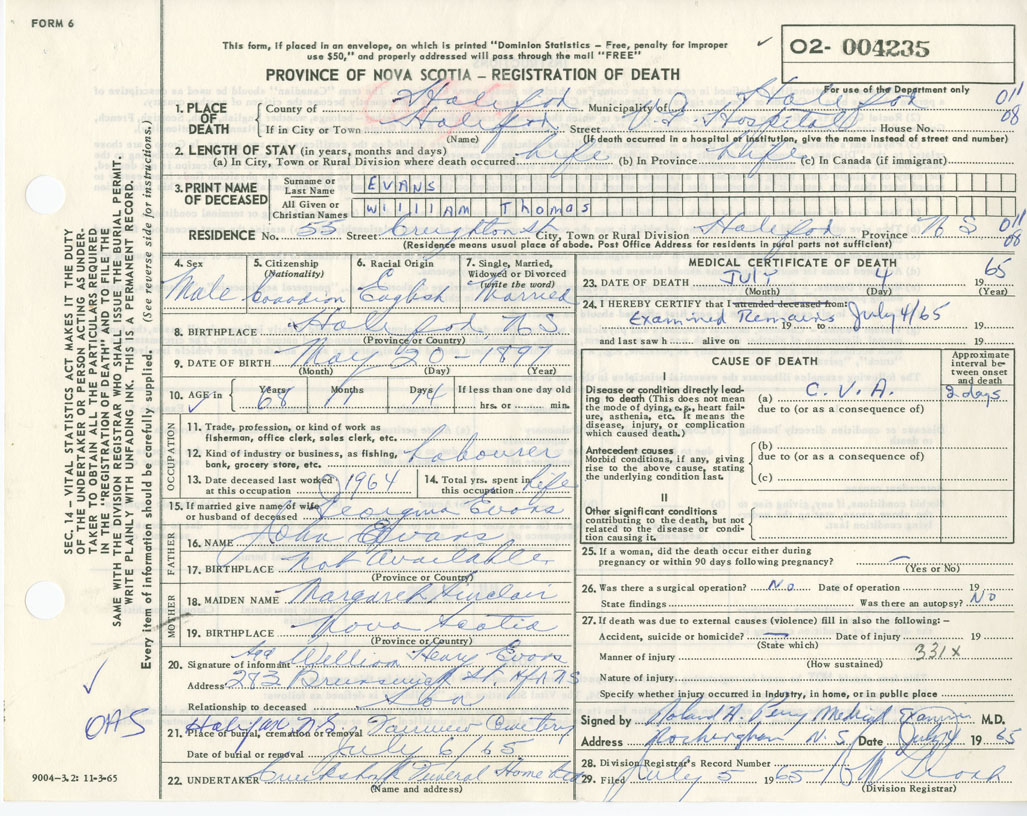 FORM 6
This form, if placed in an envelope, on which is printed "Dominion Statistics – Free, penalty for improper
use $50," and properly addressed will pass through the mail "FREE"
✓ O2- 004235
PROVINCE OF NOVA SCOTIA – REGISTRATION OF DEATH
For use of the Department only
011
08
1. PLACE OF DEATH
County of Halifax Municipality of Halifax
If in City or Town Halifax Street V.G. Hospital House No.
(Name) (If death occurred in a hospital or institution, give the name instead of street and number)
2. LENGTH OF STAY (in years, months and days)
(a) In City, Town or Rural Division where death occurred Life (b) In Province Life (c) In Canada (if immigrant)
3. PRINT NAME OF DECEASED
Surname or Last Name EVANS
All Given or Christian Names William Thomas
RESIDENCE No. 55 Street Creighton St City, Town or Rural Division Halifax Province N S
011
08
(Residence means usual place of abode. Post Office Address for residents in rural parts not sufficient)
4. Sex
Male
5. Citizenship (Nationality)
Canadian
6. Racial Origin
English
7. Single, Married, Widowed or Divorced (write the word)
Married
8. BIRTHPLACE Halifax, N S.
(Province or Country)
9. DATE OF BIRTH May 20 - 1897
(Month) (Day) (Year)
10. AGE in Years 68 Months 1 Days 14 If less than one day old
hrs. or min.
OCCUPATION
11. Trade, profession, or kind of work as
fisherman, office clerk, sales clerk, etc.
12. Kind of industry or business, as fishing, Labourer
bank, grocery store, etc.
13. Date deceased last worked at this occupation 1964
14. Total yrs. spent in this occupation Life
15. If married give name of wife or husband of deceased Georgina Evans
FATHER
16. NAME John Evans
17. BIRTHPLACE Not Available
(Province or Country)
MOTHER
18. MAIDEN NAME Margaret Sinclair
19. BIRTHPLACE Nova Scotia
(Province or Country)
20. Signature of informant Sgd William Henry Evans
Address 273 Brunswick St. Hfx NS
Relationship to deceased Son
21. Place of burial, cremation or removal Halifax N.S. Fairview Cemetery
Date of burial or removal July 6/65
22. UNDERTAKER Cruikshank Funeral Home Ltd
(Name and address)
MEDICAL CERTIFICATE OF DEATH
23. DATE OF DEATH July 4 1965
(Month) (Day) (Year)
24. I HEREBY CERTIFY that I attended deceased from:
Examined Remains 19 to July 4/65 19
and last saw h alive on 19
CAUSE OF DEATH
Approximate interval between onset and death
I
Disease or condition directly leading to death (This does not mean the mode of dying, e.g., heart failure, asthenia, etc. It means the disease, injury, or complication which caused death.)
(a) C. V. A. 2 days
due to (or as a consequence of)
Antecedent causes
Morbid conditions, if any, giving rise to the above cause, stating the underlying condition last.
(b)
due to (or as a consequence of)
(c)
II
Other significant conditions
contributing to the death, but not related to the disease or condition causing it.
25. If a woman, did the death occur either during
pregnancy or within 90 days following pregnancy? —
(Yes or No)
26. Was there a surgical operation? No Date of operation 19
State findings Was there an autopsy? No
27. If death was due to external causes (violence) fill in also the following:–
Accident, suicide or homicide? — Date of injury 19
(State which)
Manner of injury 331x
(How sustained)
Nature of injury
Specify whether injury occurred in industry, in home, or in public place
Signed by Roland A. Perry Medical Examiner M.D.
Address Rockingham N.S. Date July 4 1965
28. Division Registrar's Record Number
29. Filed July 5 1965
(Division Registrar)
SEC. 14 – VITAL STATISTICS ACT MAKES IT THE DUTY
OF THE UNDERTAKER OR PERSON ACTING AS UNDER-
TAKER TO OBTAIN ALL THE PARTICULARS REQUIRED
IN THE "REGISTRATION OF DEATH" AND TO FILE THE
SAME WITH THE DIVISION REGISTRAR WHO SHALL ISSUE THE BURIAL PERMIT.
WRITE PLAINLY WITH UNFADING INK. THIS IS A PERMANENT RECORD.
Every item of information should be carefully supplied. (See reverse side for instructions.)
✓
OAS
9004-3.2: 11-3-65